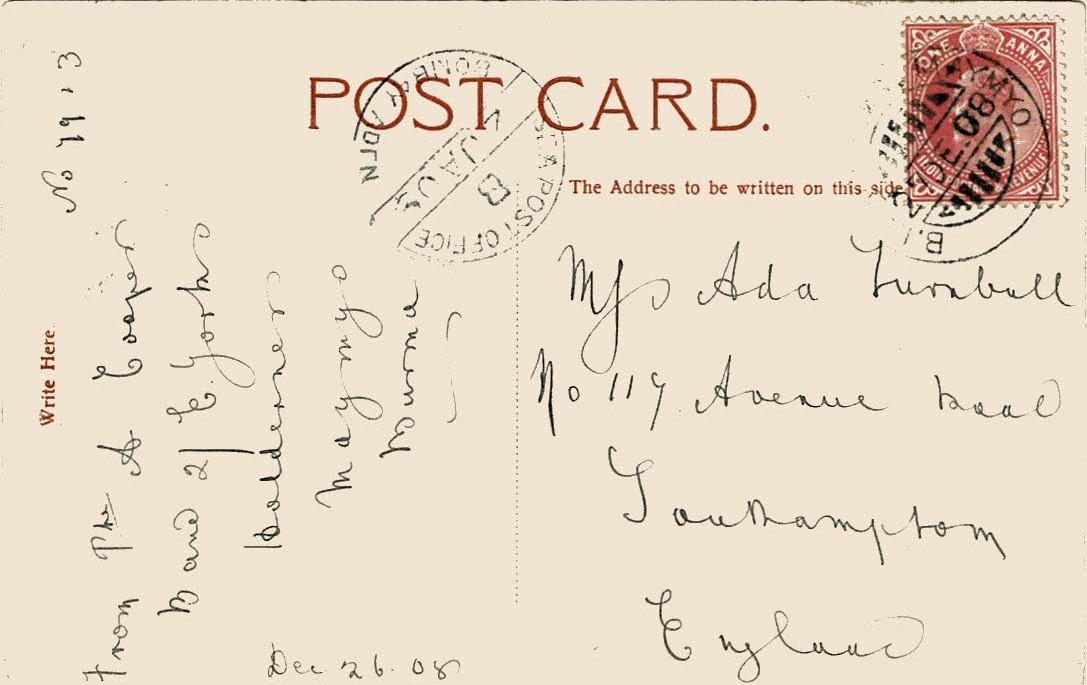 POST CARD.
The Address to be written on this side
Write Here.
ONE ANNA
MAYMYO
DE 08
SEA POST OFFICE
B
JA 09
BOMBAY ADEN
No 7913
From Pte A Cooper
Band 2/ E. Yorks
Holderness
Maymyo
Burma
Dec 26. 08
Miss Ada Turnbull
No 117 Avenue Road
Southampton
England